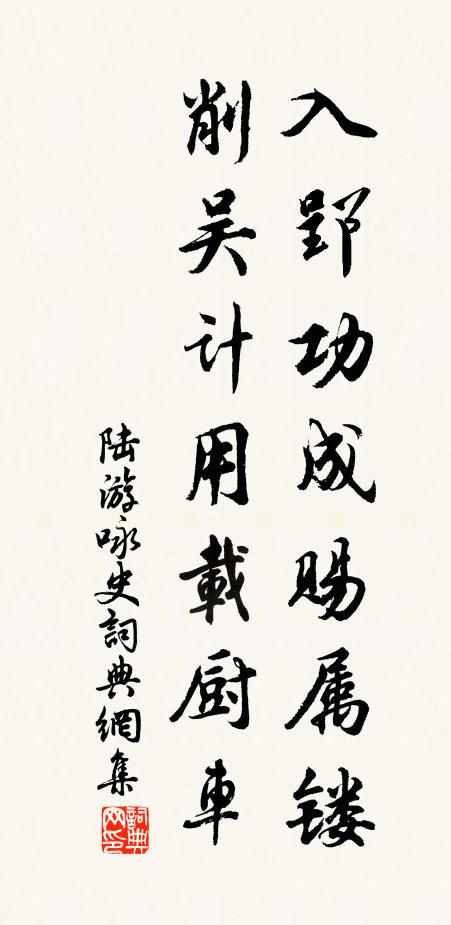 入郢功成赐属镂
削吴计用載厨車
陆游咏史詞典網集
詞典网印